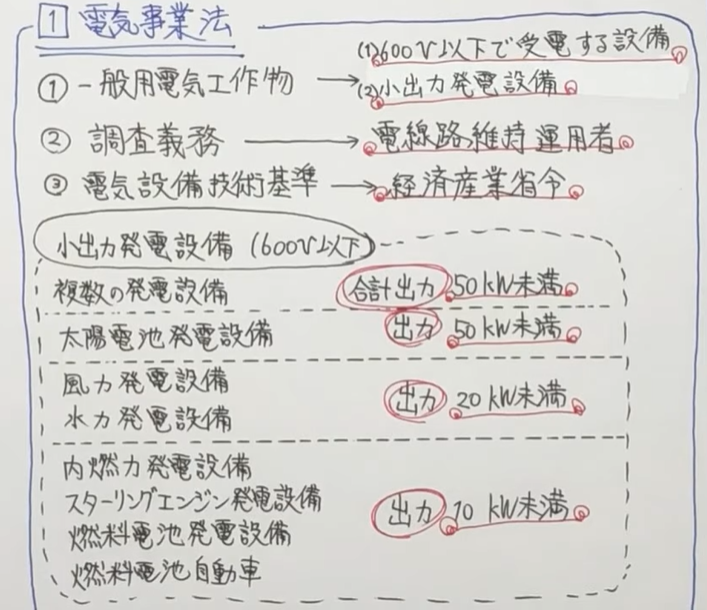 1 電気事業法
(1)600V以下で受電する設備
① 一般用電気工作物 → (2)小出力発電設備
② 調査義務 → 電線路維持運用者
③ 電気設備技術基準 → 経済産業省令
小出力発電設備 (600V以下)
複数の発電設備 合計出力 50kW未満
太陽電池発電設備 出力 50kW未満
風力発電設備
水力発電設備
出力 20kW未満
内燃力発電設備
スターリングエンジン発電設備
出力 10kW未満
燃料電池発電設備
燃料電池自動車